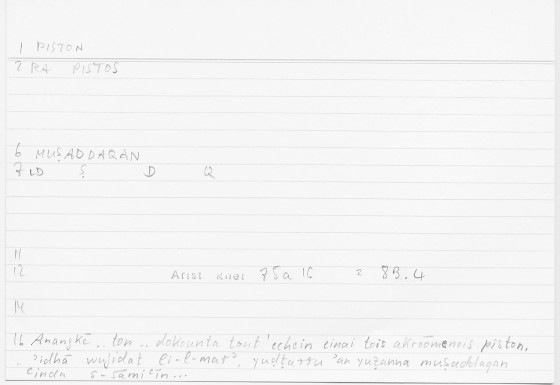 1 PISTON
2 RA PISTOS
6 MUṢADDAQAN
7 LD Ṣ D Q
11
12 Arist Rhet 75a 16 = 83.4
14
16 Anangkē .. ton .. dokounta tout' echein einai tois akroōmenois piston,
.. 'idhā wujidat li-l-mar', yuḍṭarru 'an yuẓanna muṣaddaqan
ʿinda s-sāmiʿīn...